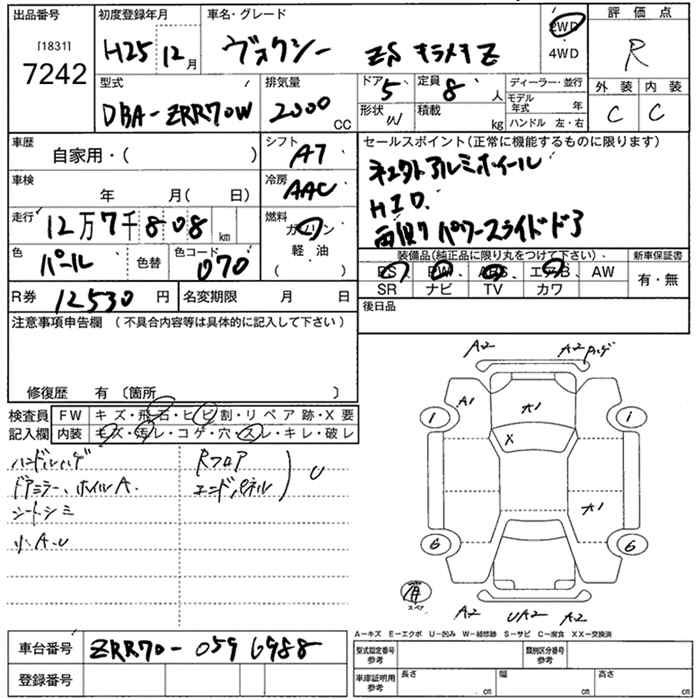 出品番号 初度登録年月 車名・グレード 2WD 評価点
[1831]
7242 H25 12月 ヴォクシー ZS キラメキZ 4WD R
型式 排気量 ドア 5 定員 8人 ディーラー・並行 外装 内装
DBA-ZRR70W 2000CC 形状 W 積載 kg モデル年式 年 C C
ハンドル 左・右
車歴 シフト セールスポイント(正常に機能するものに限ります)
自家用・( ) A7
車検 冷房 社外アルミホイール
年 月( 日) AAC HID
走行 燃料 両側パワースライドドア
12万7千808km ガソリン
色 パール 色替 色コード 070 軽油
( )
装備品(純正品に限り丸をつけて下さい)、 新車保証書
PS、PW、ABS、エアB、AW 有・無
SR ナビ TV カワ
R券 12530円 名変期限 月 日 後日品
注意事項申告欄 (不具合内容等は具体的に記入して下さい)
修復歴 有 〔箇所 〕
検査員 FW キズ・飛石・ヒビ割・リペア跡・X要
記入欄 内装 キズ・汚レ・コゲ・穴・スレ・キレ・破レ
ハンドルハゲ Rフロア
ドアミラー、ホイルA. エンドパネル U
シートシミ
リ:A・U
A2 A2 ハゲ
A1 A1
1 1
X
A1
6 6
スペア
A2 UA2 A2
車台番号 ZRR70-0596988
登録番号
A-キズ E-エクボ U-凹み W-補修跡 S-サビ C-腐食 XX-交換済
型式指定番号 参考 類別区分番号
車庫証明用 参考 長さ cm 幅 cm 高さ cm